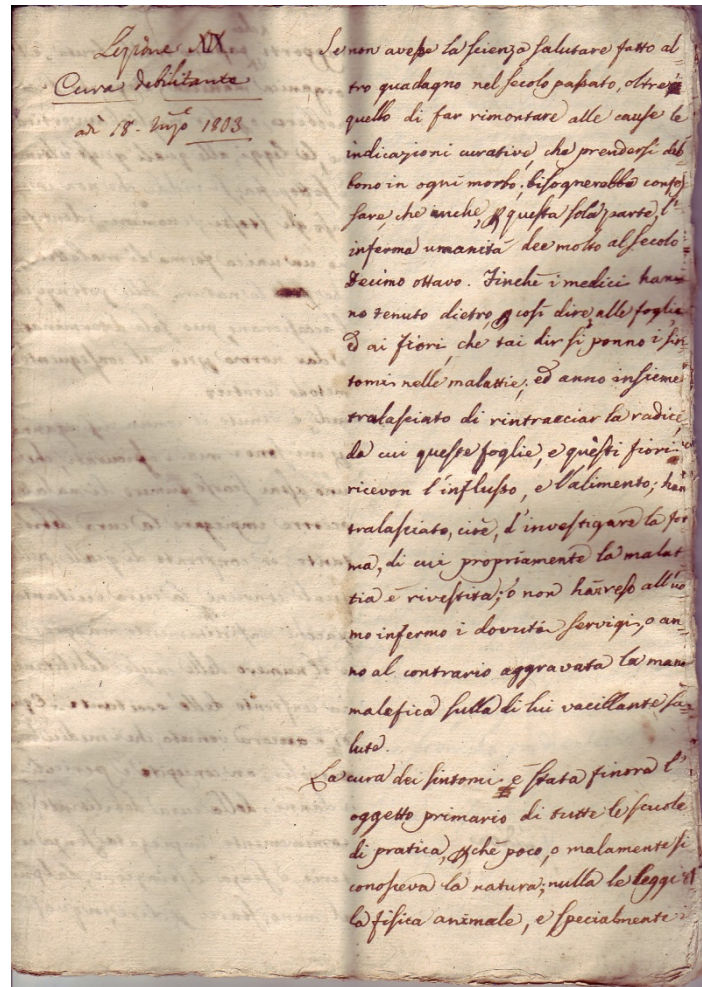 Lezione XIX
Cura debilitante
adì 18. Mg̃o 1803
Se non avesse la scienza salutare fatto al
tro guadagno nel secolo passato, oltre
quello di far rimontare alle cause le
indicazioni curative, che prendersi deb
bono in ogni morbo; bisognerebbe confes
sare, che anche, p questa sola parte, l'
inferma umanità dee molto al secolo
Decimo ottavo. Finchè i medici han=
no tenuto dietro, p così dire, alle foglie
ed ai fiori, che tai dir si ponno i sin
tomi nelle malattie; ed anno insieme
tralasciato di rintracciar la radice,
da cui queste foglie, e questi fiori
ricevon l'influsso, e l'alimento; han
tralasciato, cioè, d'investigare la for
ma, di cui propriamente la malat
tia è rivestita; o non han reso all'uo
mo infermo i dovuti servigi, o an=
no al contrario aggravata la mano
malefica sulla di lui vacillante sa=
lute.
La cura dei sintomi è stata finora l'
oggetto primario di tutte le scuole
di pratica, pchè poco, o malamente si
conosceva la natura; nulla le leggi
la fisica animale, e specialmente